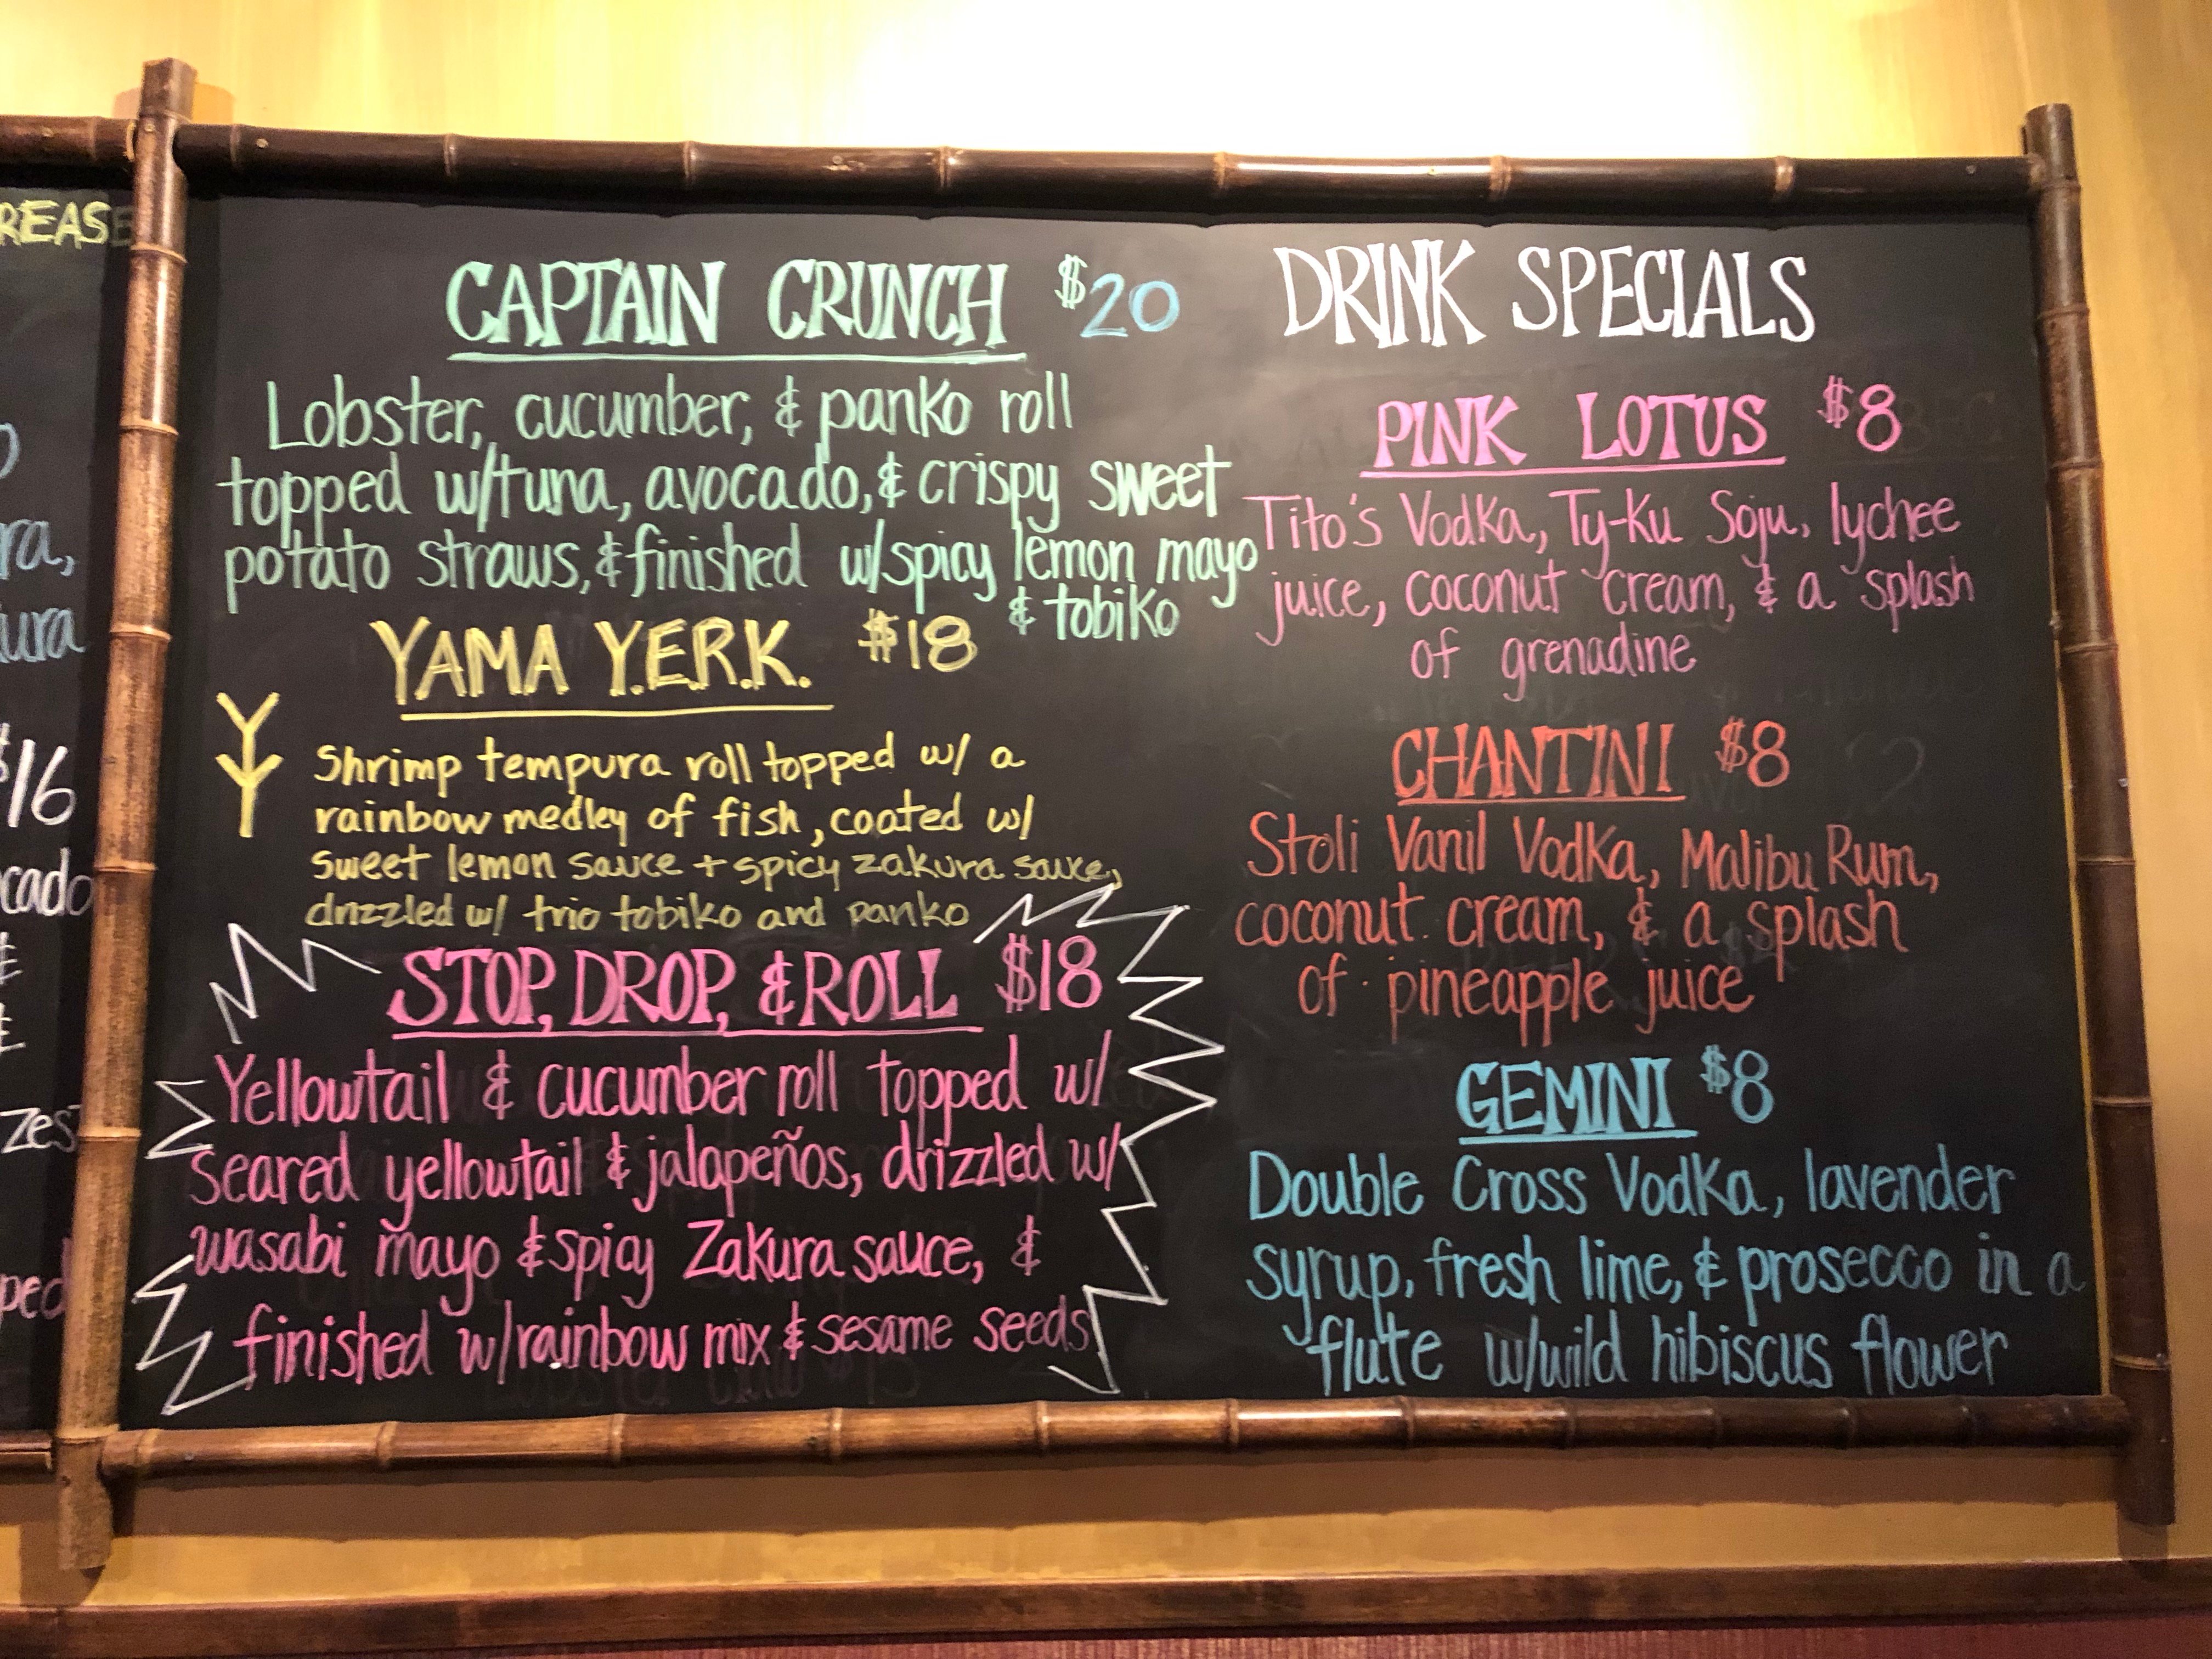 REASE
ra,
ura
$16
cado
zest
ped
CAPTAIN CRUNCH $20
Lobster, cucumber, & panko roll
topped w/tuna, avocado, & crispy sweet
potato straws, & finished w/spicy lemon mayo
& tobiko
YAMA Y.E.R.K. $18
Shrimp tempura roll topped w/ a
rainbow medley of fish, coated w/
sweet lemon sauce + spicy zakura sauce,
drizzled w/ trio tobiko and panko
STOP, DROP, & ROLL $18
Yellowtail & cucumber roll topped w/
seared yellowtail & jalapeños, drizzled w/
wasabi mayo & spicy Zakura sauce, &
finished w/rainbow mix & sesame seeds
DRINK SPECIALS
PINK LOTUS $8
Tito's Vodka, Ty-Ku Soju, lychee
juice, coconut cream, & a splash
of grenadine
CHANTINI $8
Stoli Vanil Vodka, Malibu Rum,
coconut cream, & a splash
of pineapple juice
GEMINI $8
Double Cross Vodka, lavender
syrup, fresh lime, & prosecco in a
flute w/wild hibiscus flower